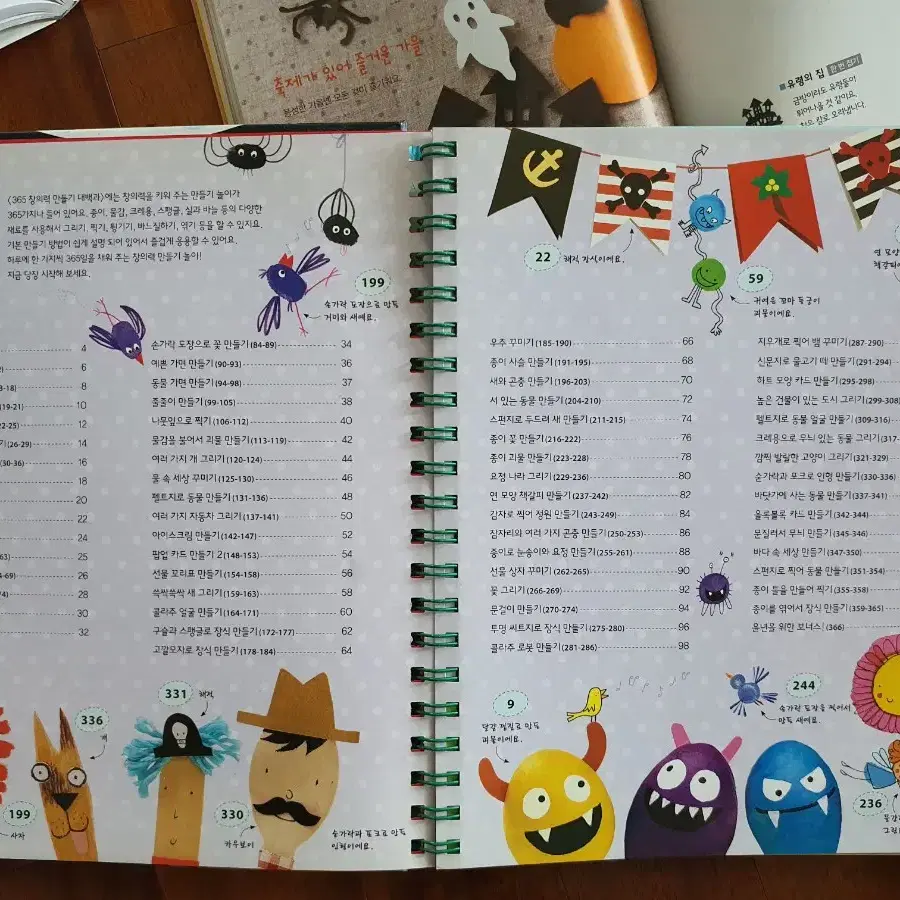 축제가 있어 즐거운 가을
풍성한 가을엔 모든 것이 즐거워요.
유령의 집 한 번 접기
금방이라도 유령들이
튀어나올 것 같아요.
<365 창의력 만들기 대백과>에는 창의력을 키워 주는 만들기 놀이가
365가지나 들어 있어요. 종이, 물감, 크레용, 스팽글, 실과 바늘 등의 다양한
재료를 사용해서 그리기, 찍기, 튕기기, 바느질하기, 엮기 등을 할 수 있지요.
기본 만들기 방법이 쉽게 설명 되어 있어서 즐겁게 응용할 수 있어요.
하루에 한 가지씩 365일을 채워 주는 창의력 만들기 놀이!
지금 당장 시작해 보세요.
199
손가락 도장으로 만든
거미와 새예요.
4
6
8
(19-21) 10
12
(26-29) 14
(30-36) 16
18
20
22
24
25
26
28
30
32
손가락 도장으로 꽃 만들기(84-89) 34
예쁜 가면 만들기(90-93) 36
동물 가면 만들기(94-98) 37
줄줄이 만들기(99-105) 38
나뭇잎으로 찍기(106-112) 40
물감을 불어서 괴물 만들기(113-119) 42
여러 가지 개 그리기(120-124) 44
물 속 세상 꾸미기(125-130) 46
펠트지로 동물 만들기(131-136) 48
여러 가지 자동차 그리기(137-141) 50
아이스크림 만들기(142-147) 52
팝업 카드 만들기 2(148-153) 54
선물 꼬리표 만들기(154-158) 56
쓱싹쓱싹 새 그리기(159-163) 58
콜라주 얼굴 만들기(164-171) 60
구슬과 스팽글로 장식 만들기(172-177) 62
고깔모자로 장식 만들기(178-184) 64
336
개
331
해적
199
사자
330
카우보이
손가락과 포크로 만든
인형이에요.
22
해적 장식이에요.
59
귀여운 꼬마 둥글이
괴물이에요.
연 모양
우주 꾸미기(185-190) 66
종이 사슬 만들기(191-195) 68
새와 곤충 만들기(196-203) 70
서 있는 동물 만들기(204-210) 72
스펀지로 두드려 새 만들기(211-215) 74
종이 꽃 만들기(216-222) 76
종이 괴물 만들기(223-228) 78
요정 나라 그리기(229-236) 80
연 모양 책갈피 만들기(237-242) 82
감자로 찍어 정원 만들기(243-249) 84
잠자리와 여러 가지 곤충 만들기(250-253) 86
종이로 눈송이와 요정 만들기(255-261) 88
선물 상자 꾸미기(262-265) 90
꽃 그리기(266-269) 92
문걸이 만들기(270-274) 94
투명 씨트지로 장식 만들기(275-280) 96
콜라주 로봇 만들기(281-286) 98
지우개로 찍어 뱀 꾸미기(287-290)
신문지로 물고기 떼 만들기(291-294)
하트 모양 카드 만들기(295-298)
높은 건물이 있는 도시 그리기(299-308)
펠트지로 동물 얼굴 만들기(309-316)
크레용으로 무늬 있는 동물 그리기(317-
깜짝 발랄한 고양이 그리기(321-329)
손가락과 포크로 인형 만들기(330-336)
바닷가에 사는 동물 만들기(337-341)
올록볼록 카드 만들기(342-344)
문질러서 무늬 만들기(345-346)
바다 속 세상 만들기(347-350)
스펀지로 찍어 동물 만들기(351-354)
종이 틀을 만들어 찍기(355-358)
종이를 엮어서 장식 만들기(359-365)
윤년을 위한 보너스!(366)
9
달걀 껍질로 만든
괴물이에요.
244
손가락 도장을 찍어서
만든 새예요.
236